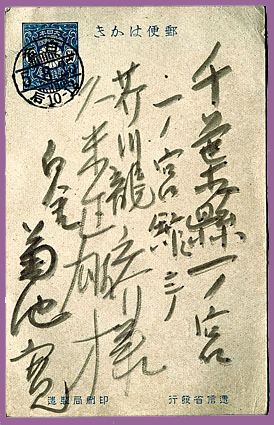 郵便はかき
千葉縣一ノ宮
一ノ宮館
芥川龍之介様
久米正雄様
菊池寛
遞信省發行
印刷局製造